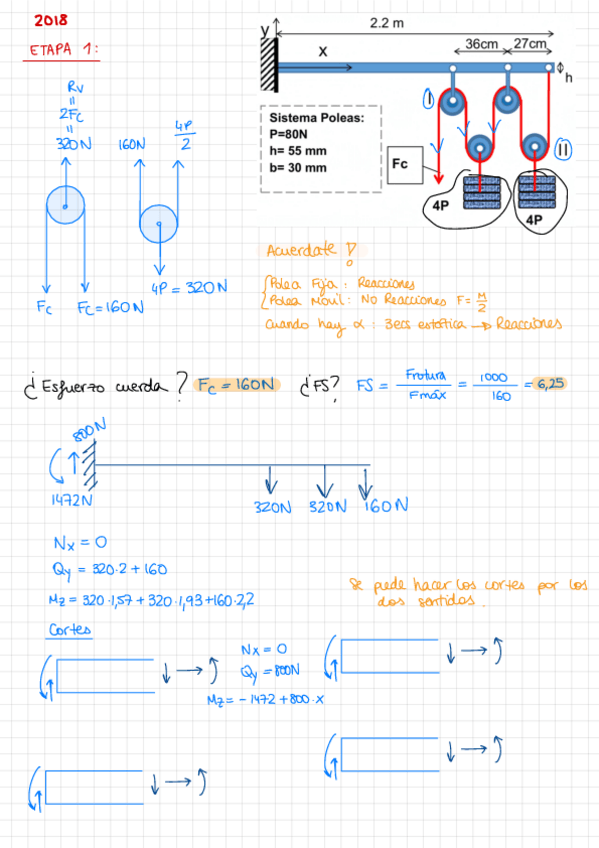 2018
ETAPA 1:
y
2.2 m
x
36cm
27cm
h
I
II
Sistema Poleas:
P=80N
h= 55 mm
b= 30 mm
Fc
4P
4P
Rv
=
2Fc
=
320N
160N
4P
2
Fc
Fc=160N
4P = 320N
Acuerdate !
Polea Fija: Reacciones
Polea Móvil: No Reacciones F= M/2
Cuando hay α: 3ecs estática → Reacciones
¿Esfuerzo cuerda? Fc = 160N ¿FS? FS = Frotura/Fmáx = 1000/160 = 6,25
800N
1472N
320N
320N
160N
Nx = 0
Qy = 320·2 + 160
Mz = 320·1,57 + 320·1,93 + 160·2,2
Se puede hacer los cortes por los
dos sentidos.
Cortes
Nx = 0
Qy = 800N
Mz = - 1472 + 800·x